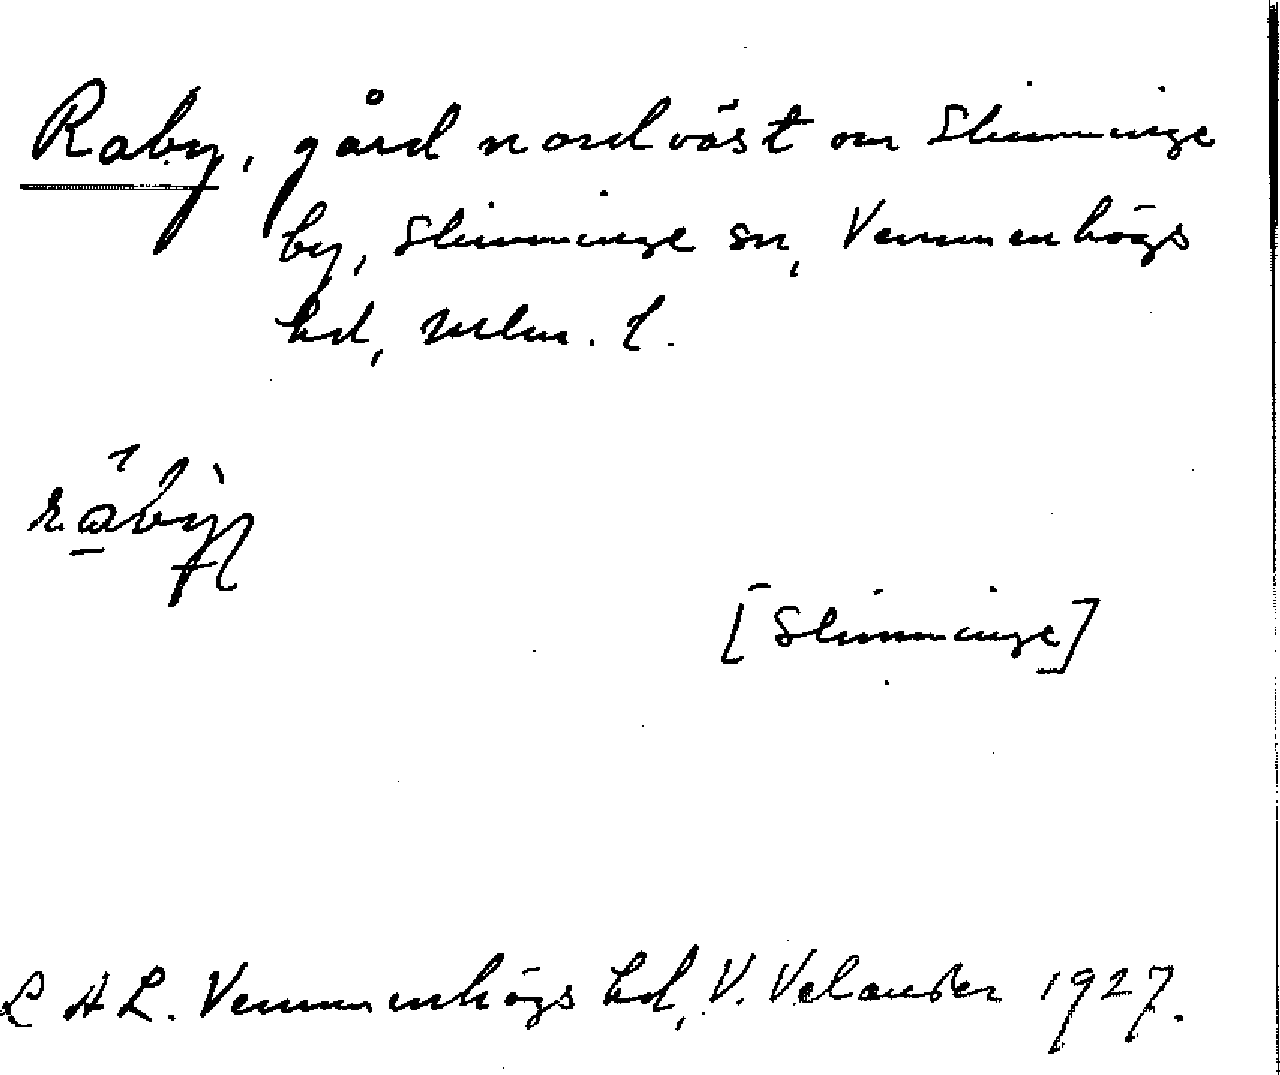 Raby, gård nordväst om Slimminge
by, Slimminge sn, Vemmenhögs
hd, Mlm. l.
[Slimminge]
LAL. Vemmenhögs hd, V. Velander 1927.